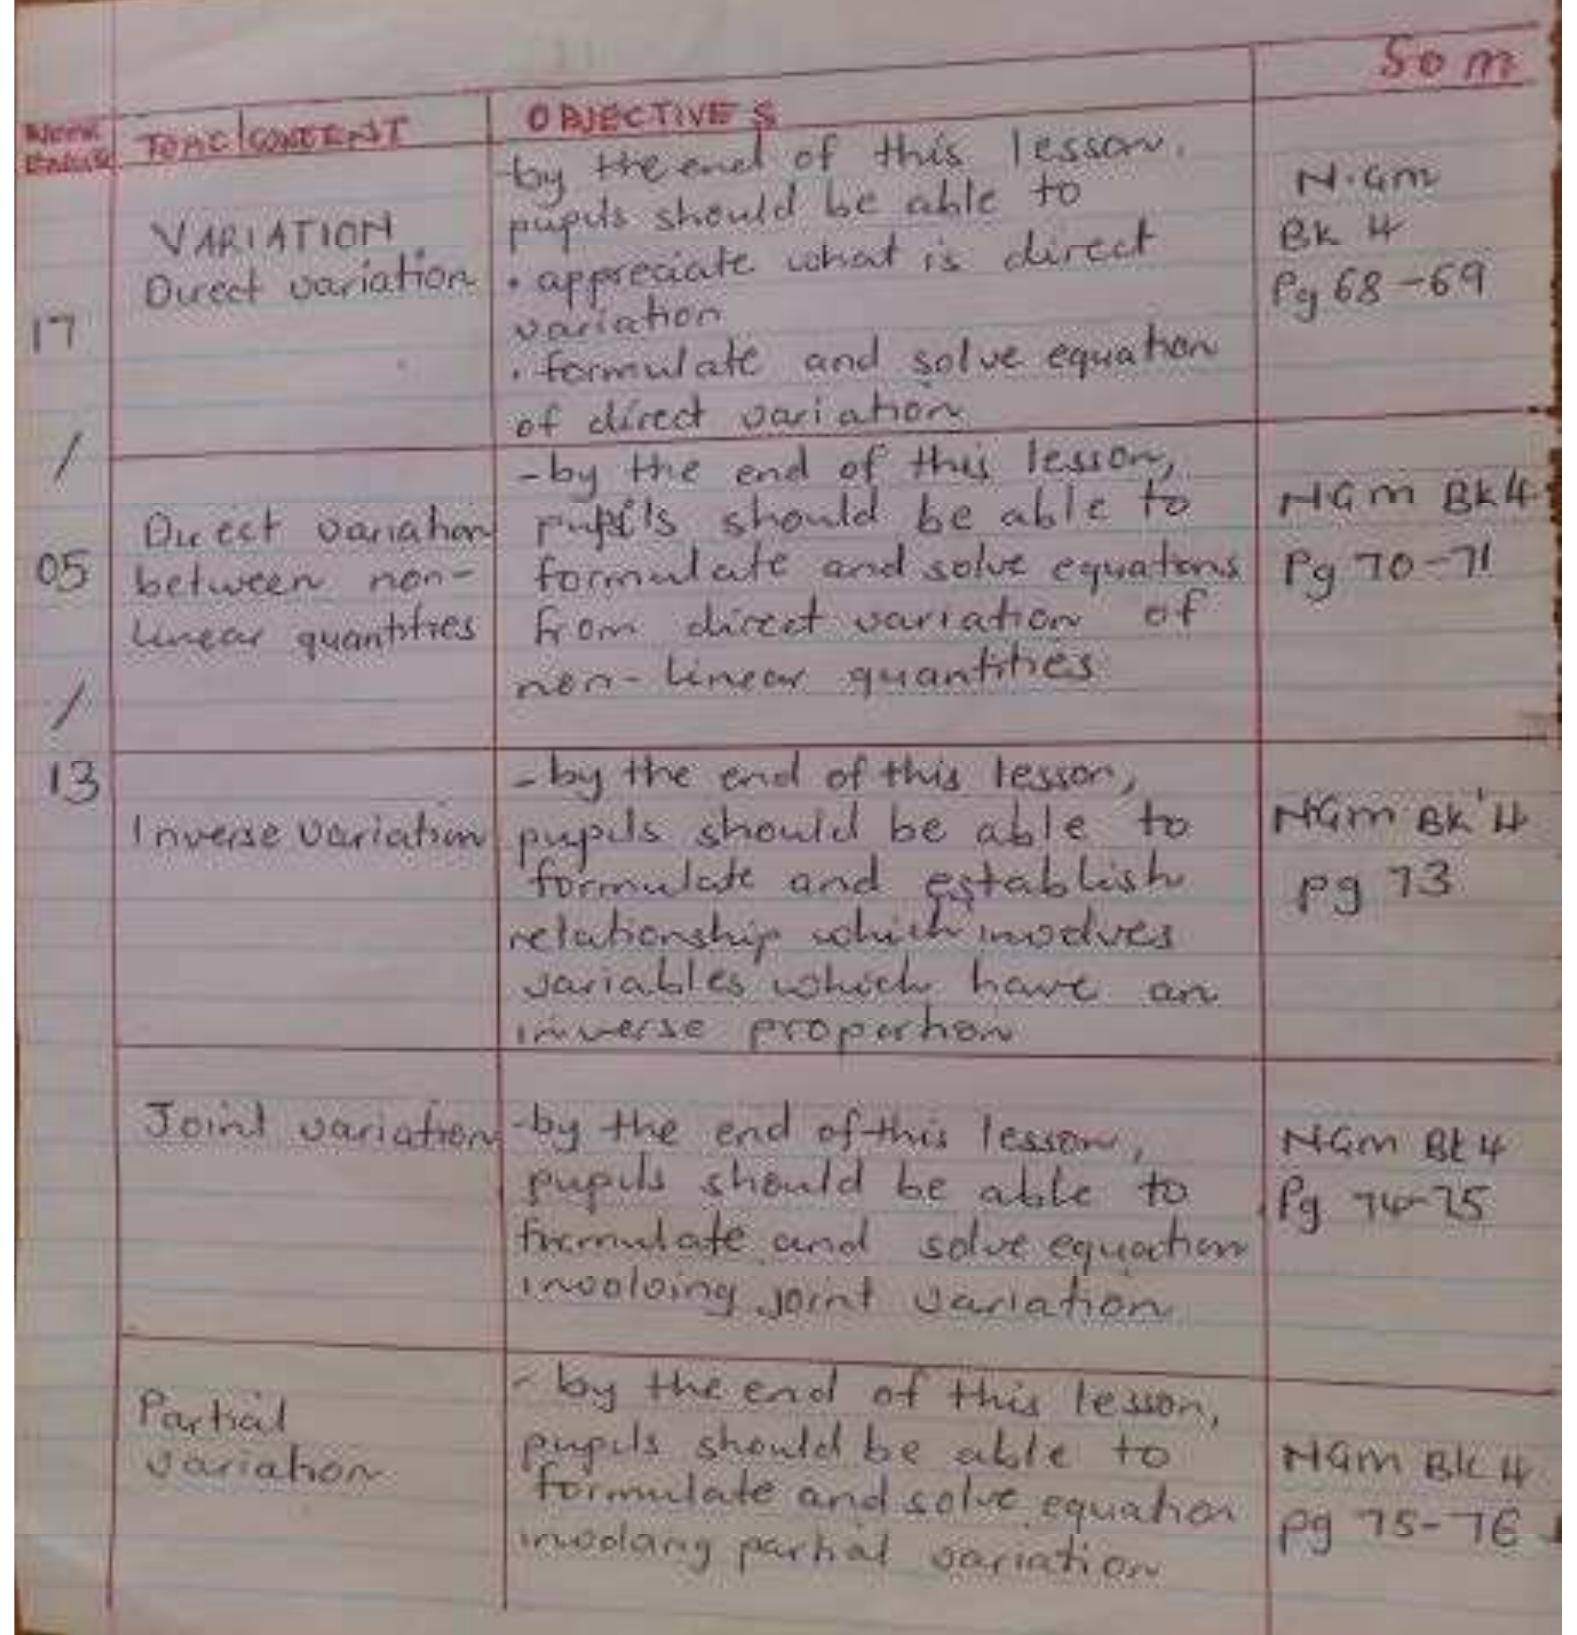 SOM
WEEK
ENDING
TOPIC/CONTENT
OBJECTIVES
17
/
05
/
13
VARIATION
Direct variation
-by the end of this lesson.
pupils should be able to
• appreciate what is direct
variation
• formulate and solve equation
of direct variation
N.Gm
Bk 4
Pg 68-69
Direct variation
between non-
linear quantities
-by the end of this lesson,
pupils should be able to
formulate and solve equations
from direct variation of
non-linear quantities
NGm Bk4
Pg 70-71
Inverse variation
-by the end of this lesson,
pupils should be able to
formulate and establish
relationship which involves
variables which have an
inverse proportion
NGm Bk 4
pg 73
Joint variation
-by the end of this lesson,
pupils should be able to
formulate and solve equation
involving joint variation
NGm Bk 4
Pg 74-75
Partial
variation
-by the end of this lesson,
pupils should be able to
formulate and solve equation
involving partial variation
NGm Bk 4
pg 75-76